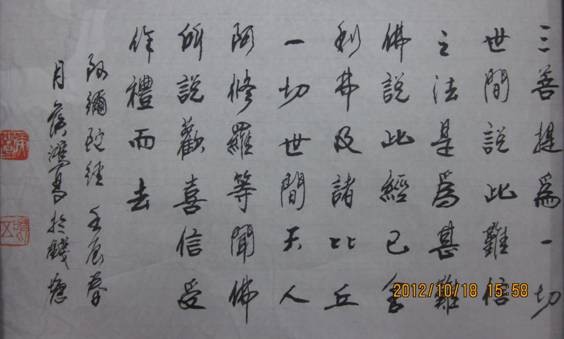 三菩提為一切
世間說此難信
之法是為甚難
佛說此經已舍
利弗及諸比丘
一切世間天人
阿修羅等聞佛
所說歡喜信受
作禮而去
阿彌陀經 壬辰春
月 於
2012/10/18 15:58